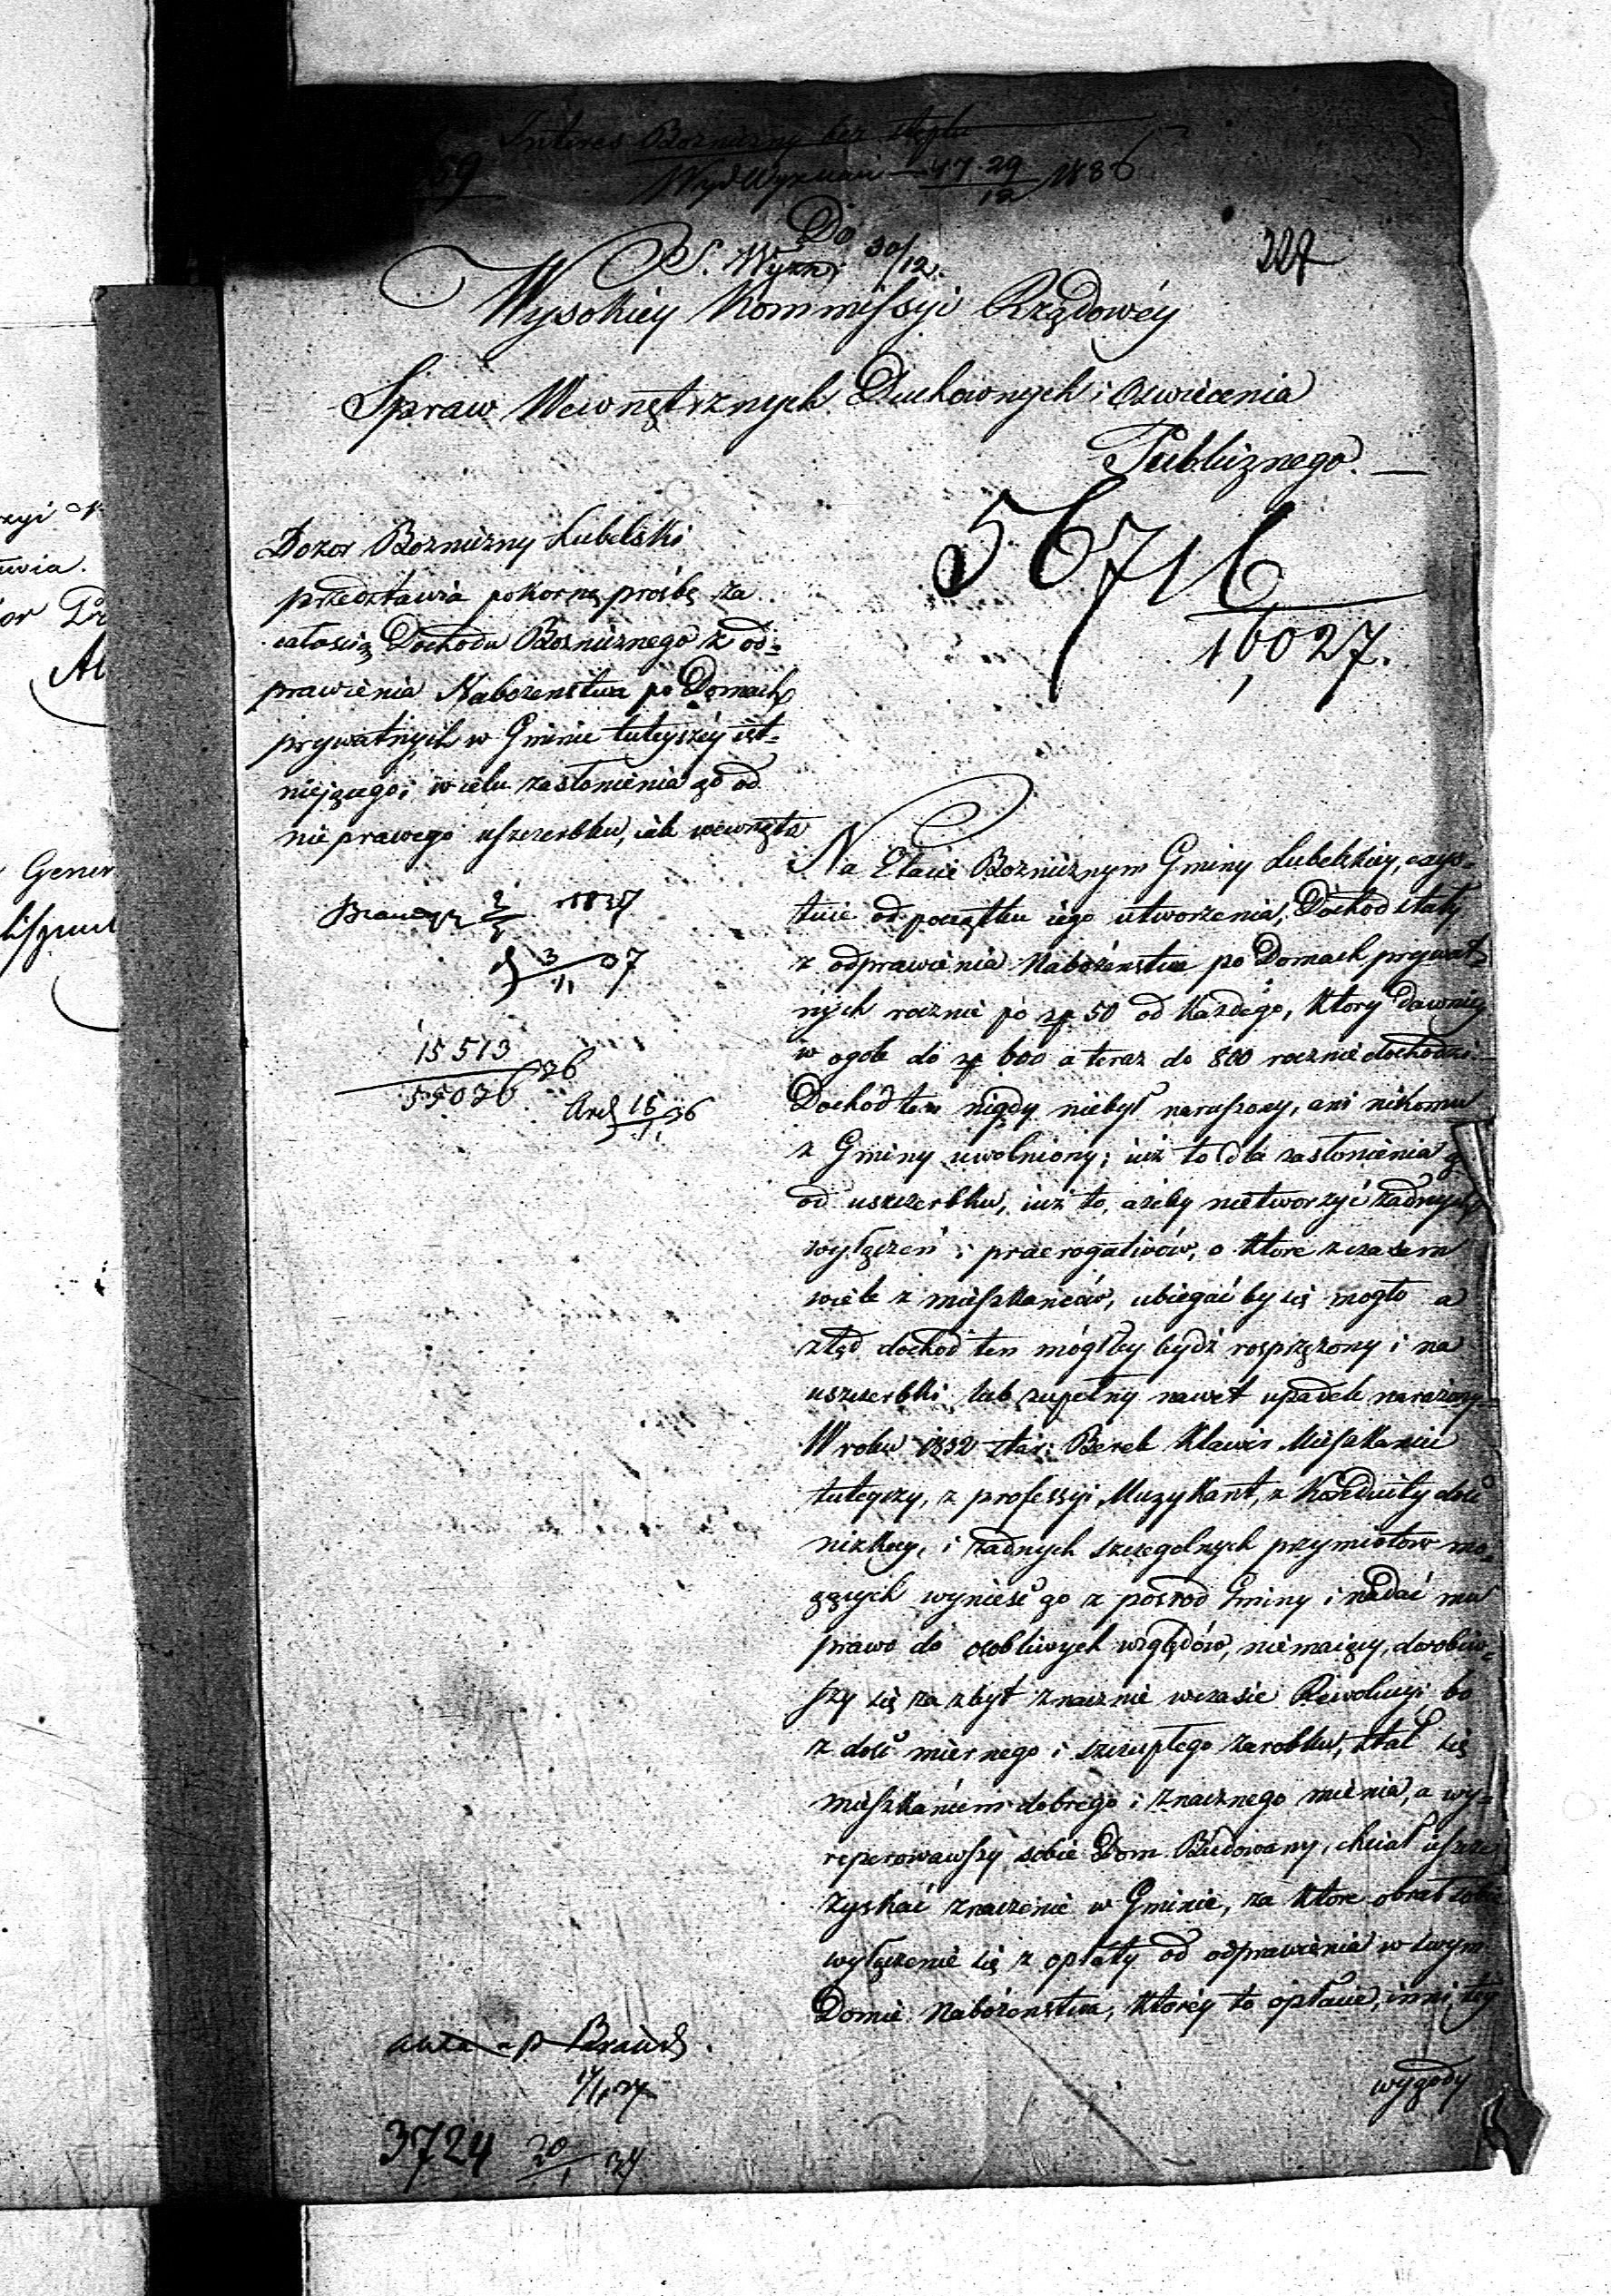 Interes Bozniczny bez stęplu
59
Wyd Wyznań 47. 29/12 1836
Do
S. Wyzn. 30/12.
227
Wysokiéy Kommissyi Rządowéy
Spraw Wewnętrznych Duchownych i Oswiecenia
Publicznego.
56716
16027.
Dozor Bozniczny Lubelski
przedstawia pokorną prosbę za
całością Dochodu Boznicznego z od=
prawienia Nabożenstwa po Domach
prywatnych w Gminie tuteyszéy ist=
niejącego, w celu zasłonienia go od
nie prawego uszczerbku, iak wewnątrz
1837
3/1 37
15513
55036 36
15/1 36
Na Etacie Boznicznym Gminy Lubelskiey, exys=
tuie od początku iego utworzenia, Dochod stały
z odprawienia Nabożenstwa po Domach prywat=
nych rocznie po zł 50 od każdego, który dawniey
w ogole do zł 600 a teraz do 800 rocznie dochodzi.
Dochód ten nigdy niebył naruszony, ani nikomu
z Gminy uwolniony; iuż to dla zasłonienia go
od uszczerbku, iuż to, ażeby nietworzyć żadnych
wyłączeń i praerogatiwów, o które z czasem
wiele z mieszkańców, ubiegać by się mogło a
ztąd dochod ten mógłby bydź rosprzężony i na
uszczerbki lub zupełny nawet upadek narażony.
W roku 1832 star: Berek Klawir Mieszkaniec
tuteyszy, z professyi Muzykant, z Konduity dość
nizkiey, i żadnych szczegolnych przymiotow mo=
gących wynieść go z pośrod Gminy i nadać mu
prawo do osobliwych względów, niemaiący, dorobiw=
szy się za zbyt znacznie wczasie Rewolucyi, bo
z dość miernego i szczupłego zarobku, stał się
mieszkańcem dobrego i znacznego mienia, a wy=
reperowawszy sobie Dom Budowany, chciał ieszcze
zyskać znaczenie w Gminie, za które obrał sobie
wyłączenie się z opłaty od odprawienia w swym
Domie Nabożenstwa, któréy to opłacie, inni tey
wygody
3724 20/1 37